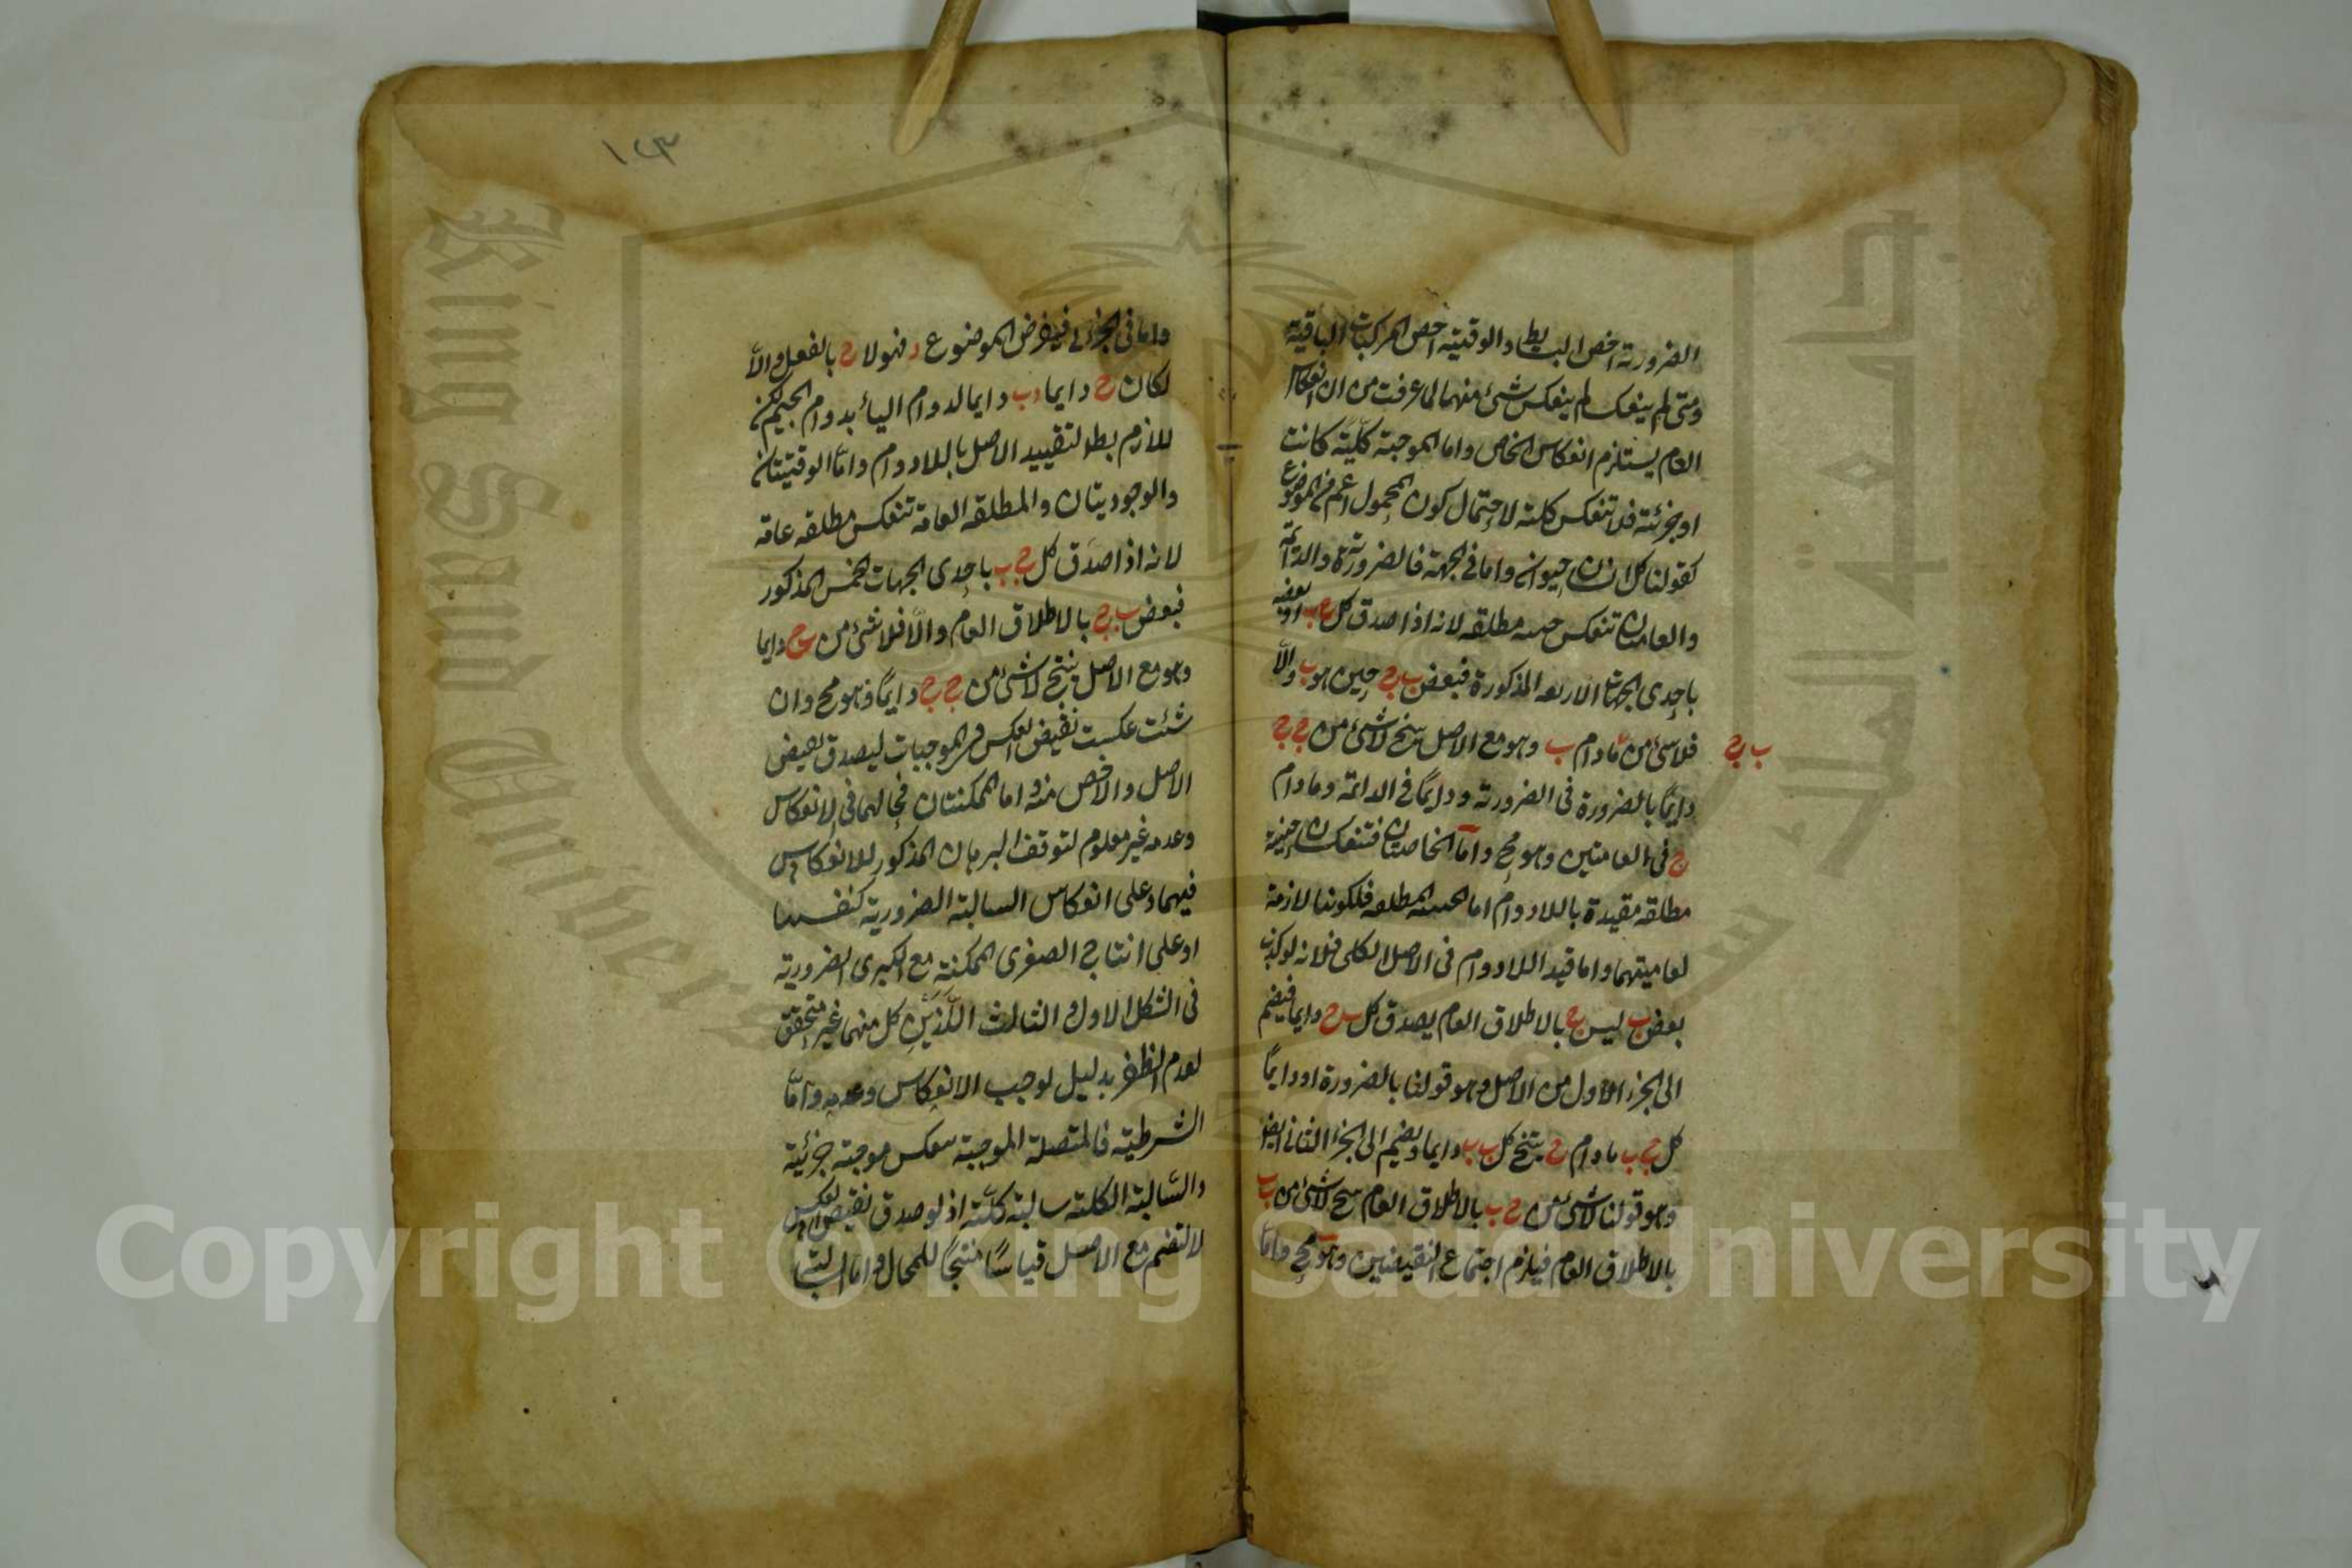 الضرورية اخص البسايط والوقتية اخص المركبات الباقية
ومتى لم ينعكسا لم ينعكس شئ منهما لما عرفت من ان انعكاس
العام يستلزم انعكاس الخاص واما الموجبة كلية كانت
او جزئية فلا تنعكس كلية لاحتمال كون المحمول اعم من الموضوع
كقولنا كل انسان حيوان واما في الجهة فالضرورية والدائمة
والعامتان تنعكس حينية مطلقه لانه اذا صدق كل ج ب او بعضه
باحدى الجهات الاربعه المذكورة فبعض ب ج حين هو ب والا
فلا شئ من ما دام ب وهو مع الاصل ينتج لا شئ من ج ج
ب ج
دايما بالضرورة في الضرورية ودايما في الدائمة وما دام
ج في العامتين وهو مح واما الخاصتان فتنعكسان حينية
مطلقه مقيدة باللادوام اما الحينية المطلقه فلكونها لازمة
لعاميتهما واما قيد اللادوام في الاصل الكلي فلانه لو كذب
بعض ب ليس ج بالاطلاق العام يصدق كل ب ج دايما فيضم
الى الجزء الاول من الاصل وهو قولنا بالضرورة او دايما
كل ج ب ما دام ج ينتج كل ب ب دايما ويضم الى الجزء الثاني ايضا
وهو قولنا لا شئ من ج ب بالاطلاق العام ينتج لا شئ من ب ب
بالاطلاق العام فيلزم اجتماع النقيضين وهو مح واما
١٤٣
واما في الجزئي فيفرض الموضوع د فهو لا ج بالفعل والا
لكان ج دايما د ب دايما لدوام الباء بدوام الجيم لكن
اللازم بط لتقييد الاصل باللادوام واما الوقتيتان
والوجوديتان والمطلقه العامة تنعكس مطلقه عامة
لانه اذا صدق كل ج ب باحدى الجهات الخمس المذكور
فبعض ب ج بالاطلاق العام والا فلا شئ من ب ج دايما
وهو مع الاصل ينتج لا شئ من ج ج دايما وهو مح وان
شئت عكست نقيض العكس في الموجبات ليصدق نقيض
الاصل والاخص منه واما الممكنتان فحالهما في الانعكاس
وعدمه غير معلوم لتوقف البرهان المذكور للانعكاس
فيهما على انعكاس السالبة الضرورية كنفسها
او على انتاج الصغرى الممكنة مع الكبرى الضرورية
في الشكل الاول والثالث اللذين كل منهما غير متحقق
لعدم الظفر بدليل يوجب الانعكاس وعدمه واما
الشرطية فالمتصلة الموجبة تنعكس موجبة جزئية
والسالبة الكلية سالبة كلية اذ لو صدق نقيض العكس
لانتظم مع الاصل قياسا منتجا للمحال واما السالبة